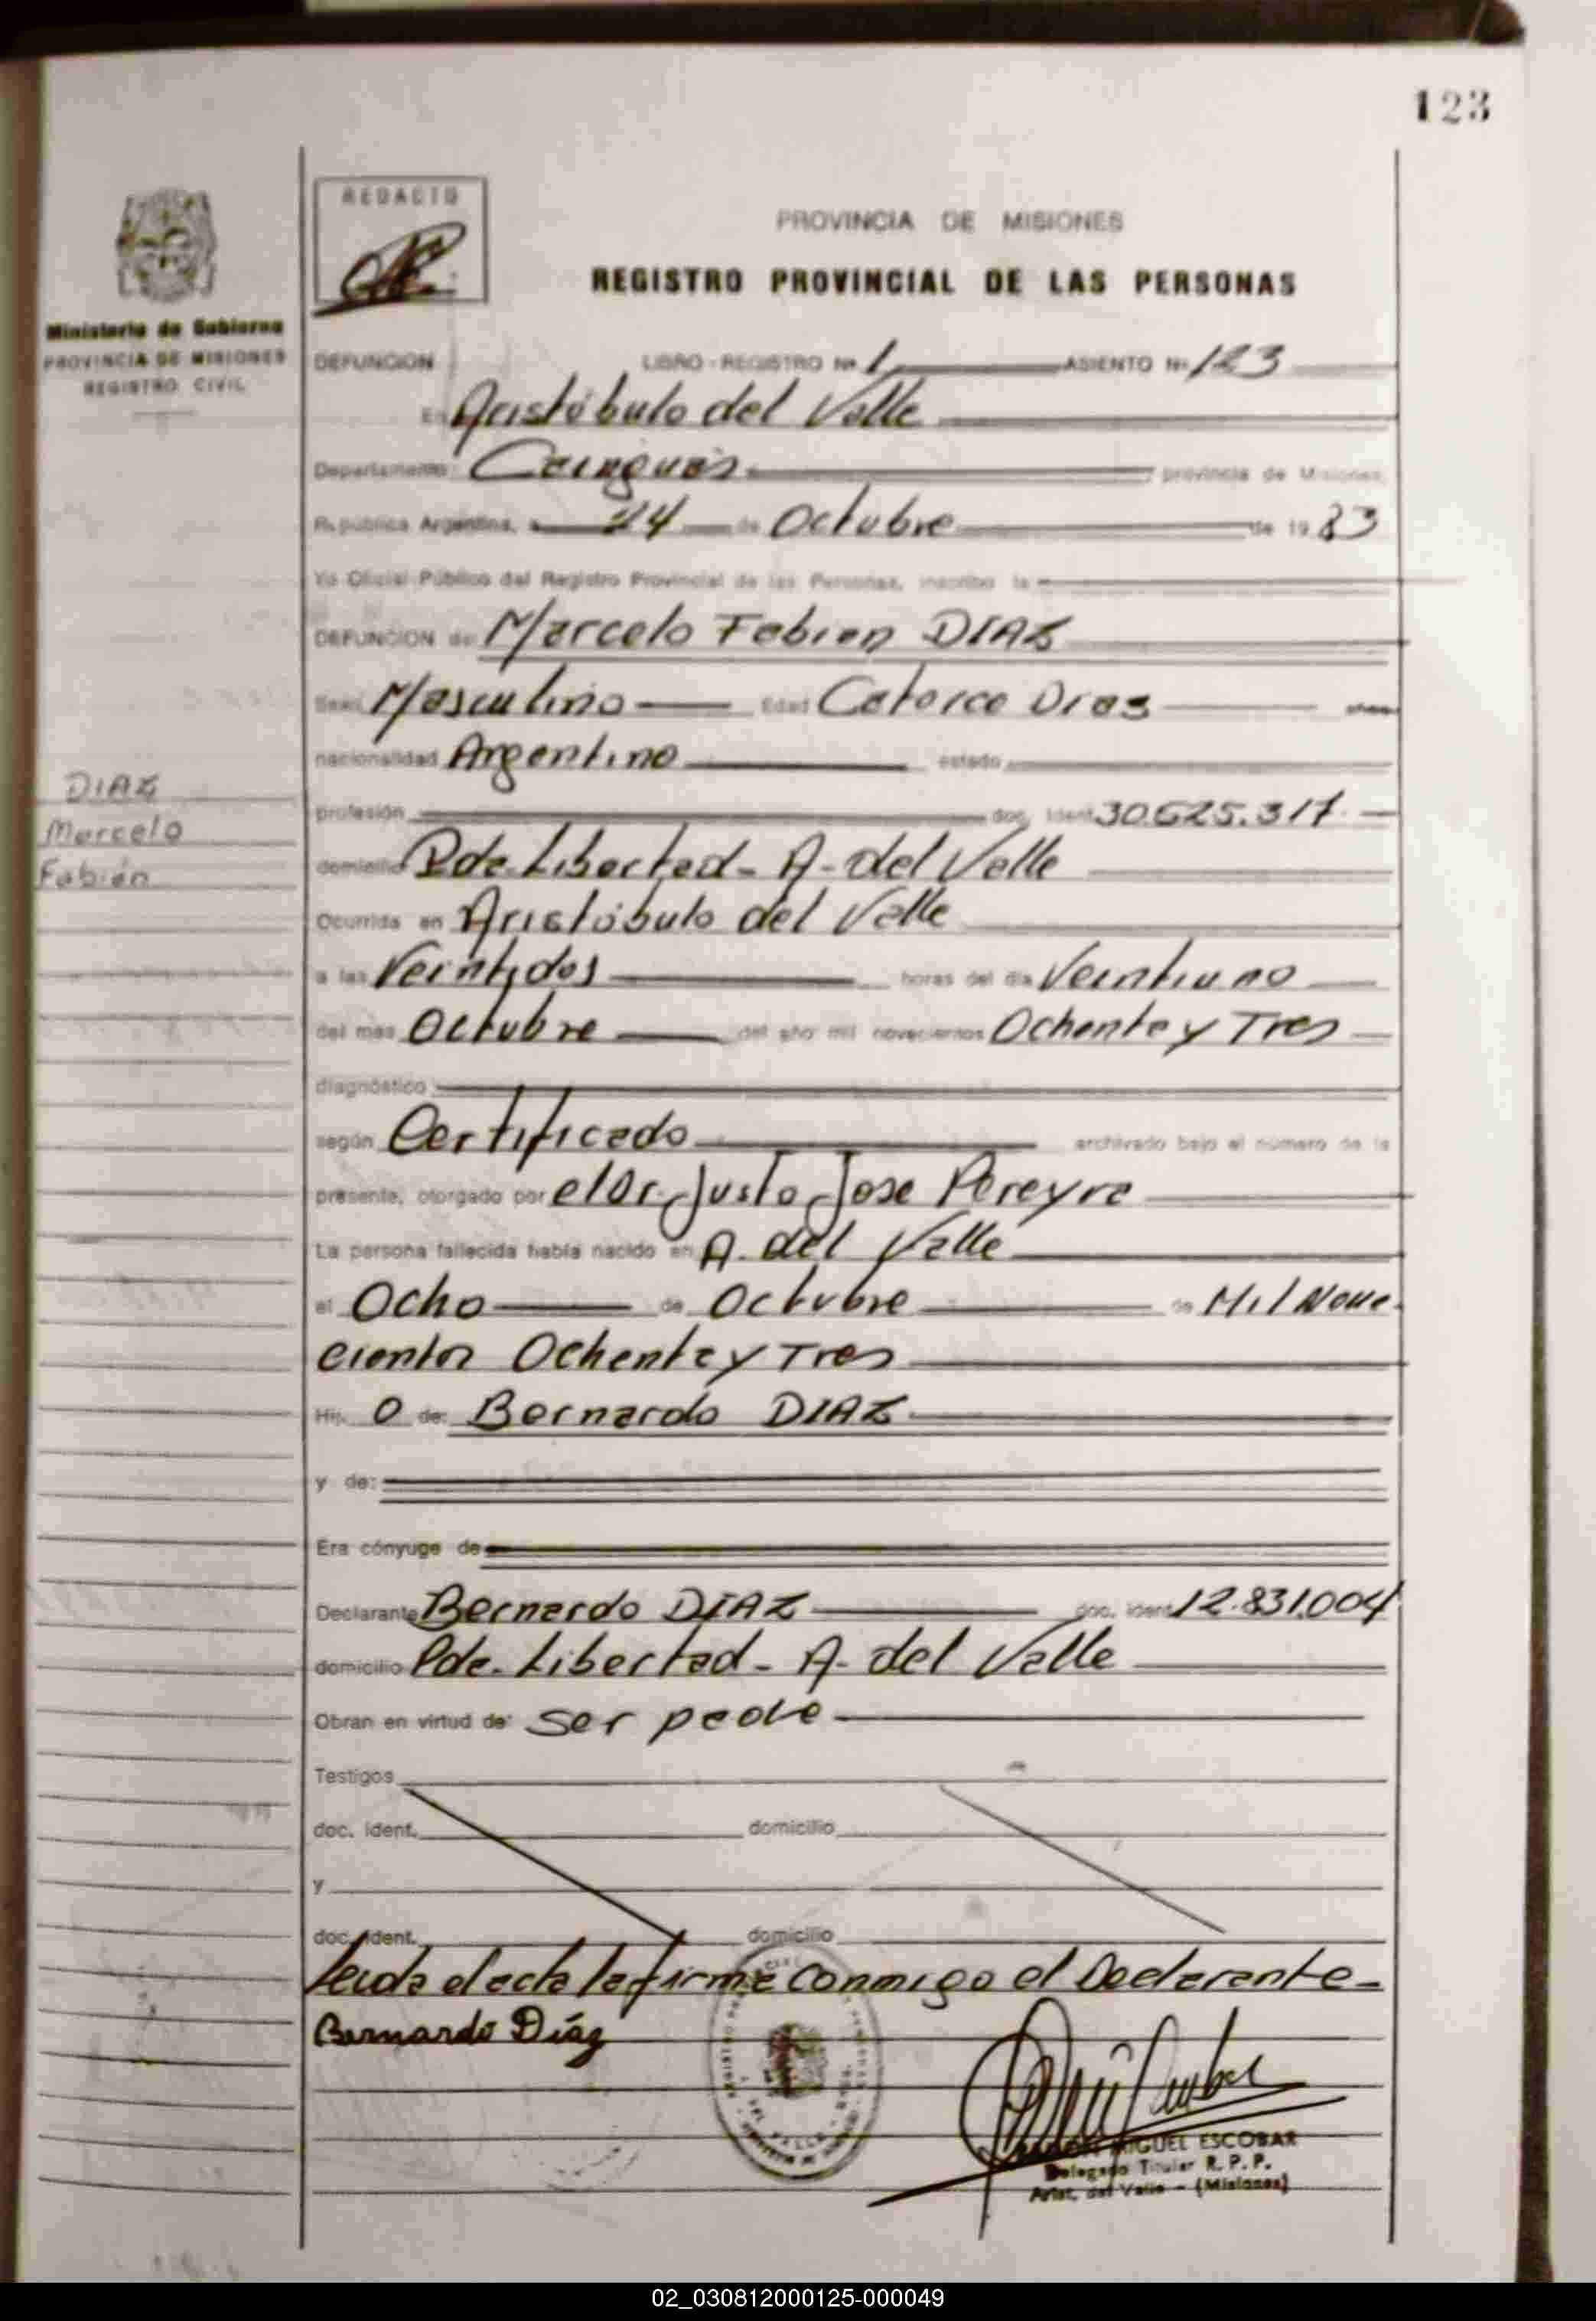 123
REDACTO
PROVINCIA DE MISIONES
REGISTRO PROVINCIAL DE LAS PERSONAS
Ministerio de Gobierno
PROVINCIA DE MISIONES
REGISTRO CIVIL
DEFUNCION LIBRO - REGISTRO Nº 1 ASIENTO Nº 123
En Aristóbulo del Valle
Departamento Cainguás provincia de Misiones,
República Argentina, a 24 de Octubre de 1983
Yo Oficial Público del Registro Provincial de las Personas, inscribo la
DEFUNCION de Marcelo Fabian DIAZ
Sexo Masculino Edad Catorce Dias
nacionalidad Argentino estado
DIAZ
Marcelo
Fabián
profesión doc. ident. 30.625.317.
domicilio Pde. Libertad - A. del Valle
Ocurrida en Aristóbulo del Valle
a las Veintidos horas del día Veintiuno
del mes Octubre del año mil novecientos Ochenta y Tres
diagnóstico
según Certificado archivado bajo el número de la
presente, otorgado por el Dr. Justo Jose Pereyra
La persona fallecida había nacido en A. del Valle
el Ocho de Octubre de Mil Nove
cientos Ochenta y Tres
Hij o de: Bernardo DIAZ
y de:
Era cónyuge de
Declarante Bernardo DIAZ doc. ident. 12.831.004
domicilio Pde. Libertad - A. del Valle
Obran en virtud de: ser padre
Testigos
doc. ident. domicilio
y
doc. ident. domicilio
Leida el acta la firma conmigo el Declarante-
Bernardo Díaz
MIGUEL ESCOBAR
Delegado Titular R. P. P.
Arist. del Valle - (Misiones)
02_030812000125-000049